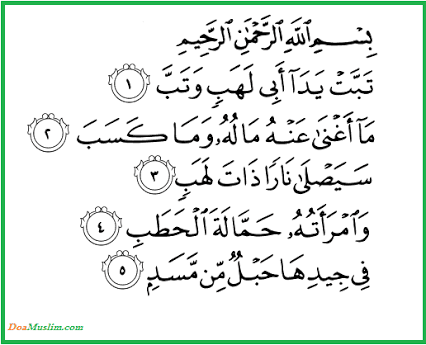 بِسْمِ ٱللَّهِ ٱلرَّحْمَٰنِ ٱلرَّحِيمِ
تَبَّتْ يَدَآ أَبِى لَهَبٍ وَتَبَّ ١
مَآ أَغْنَىٰ عَنْهُ مَالُهُۥ وَمَا كَسَبَ ٢
سَيَصْلَىٰ نَارًا ذَاتَ لَهَبٍ ٣
وَٱمْرَأَتُهُۥ حَمَّالَةَ ٱلْحَطَبِ ٤
فِى جِيدِهَا حَبْلٌ مِّن مَّسَدٍۭ ٥
DoaMuslim.com